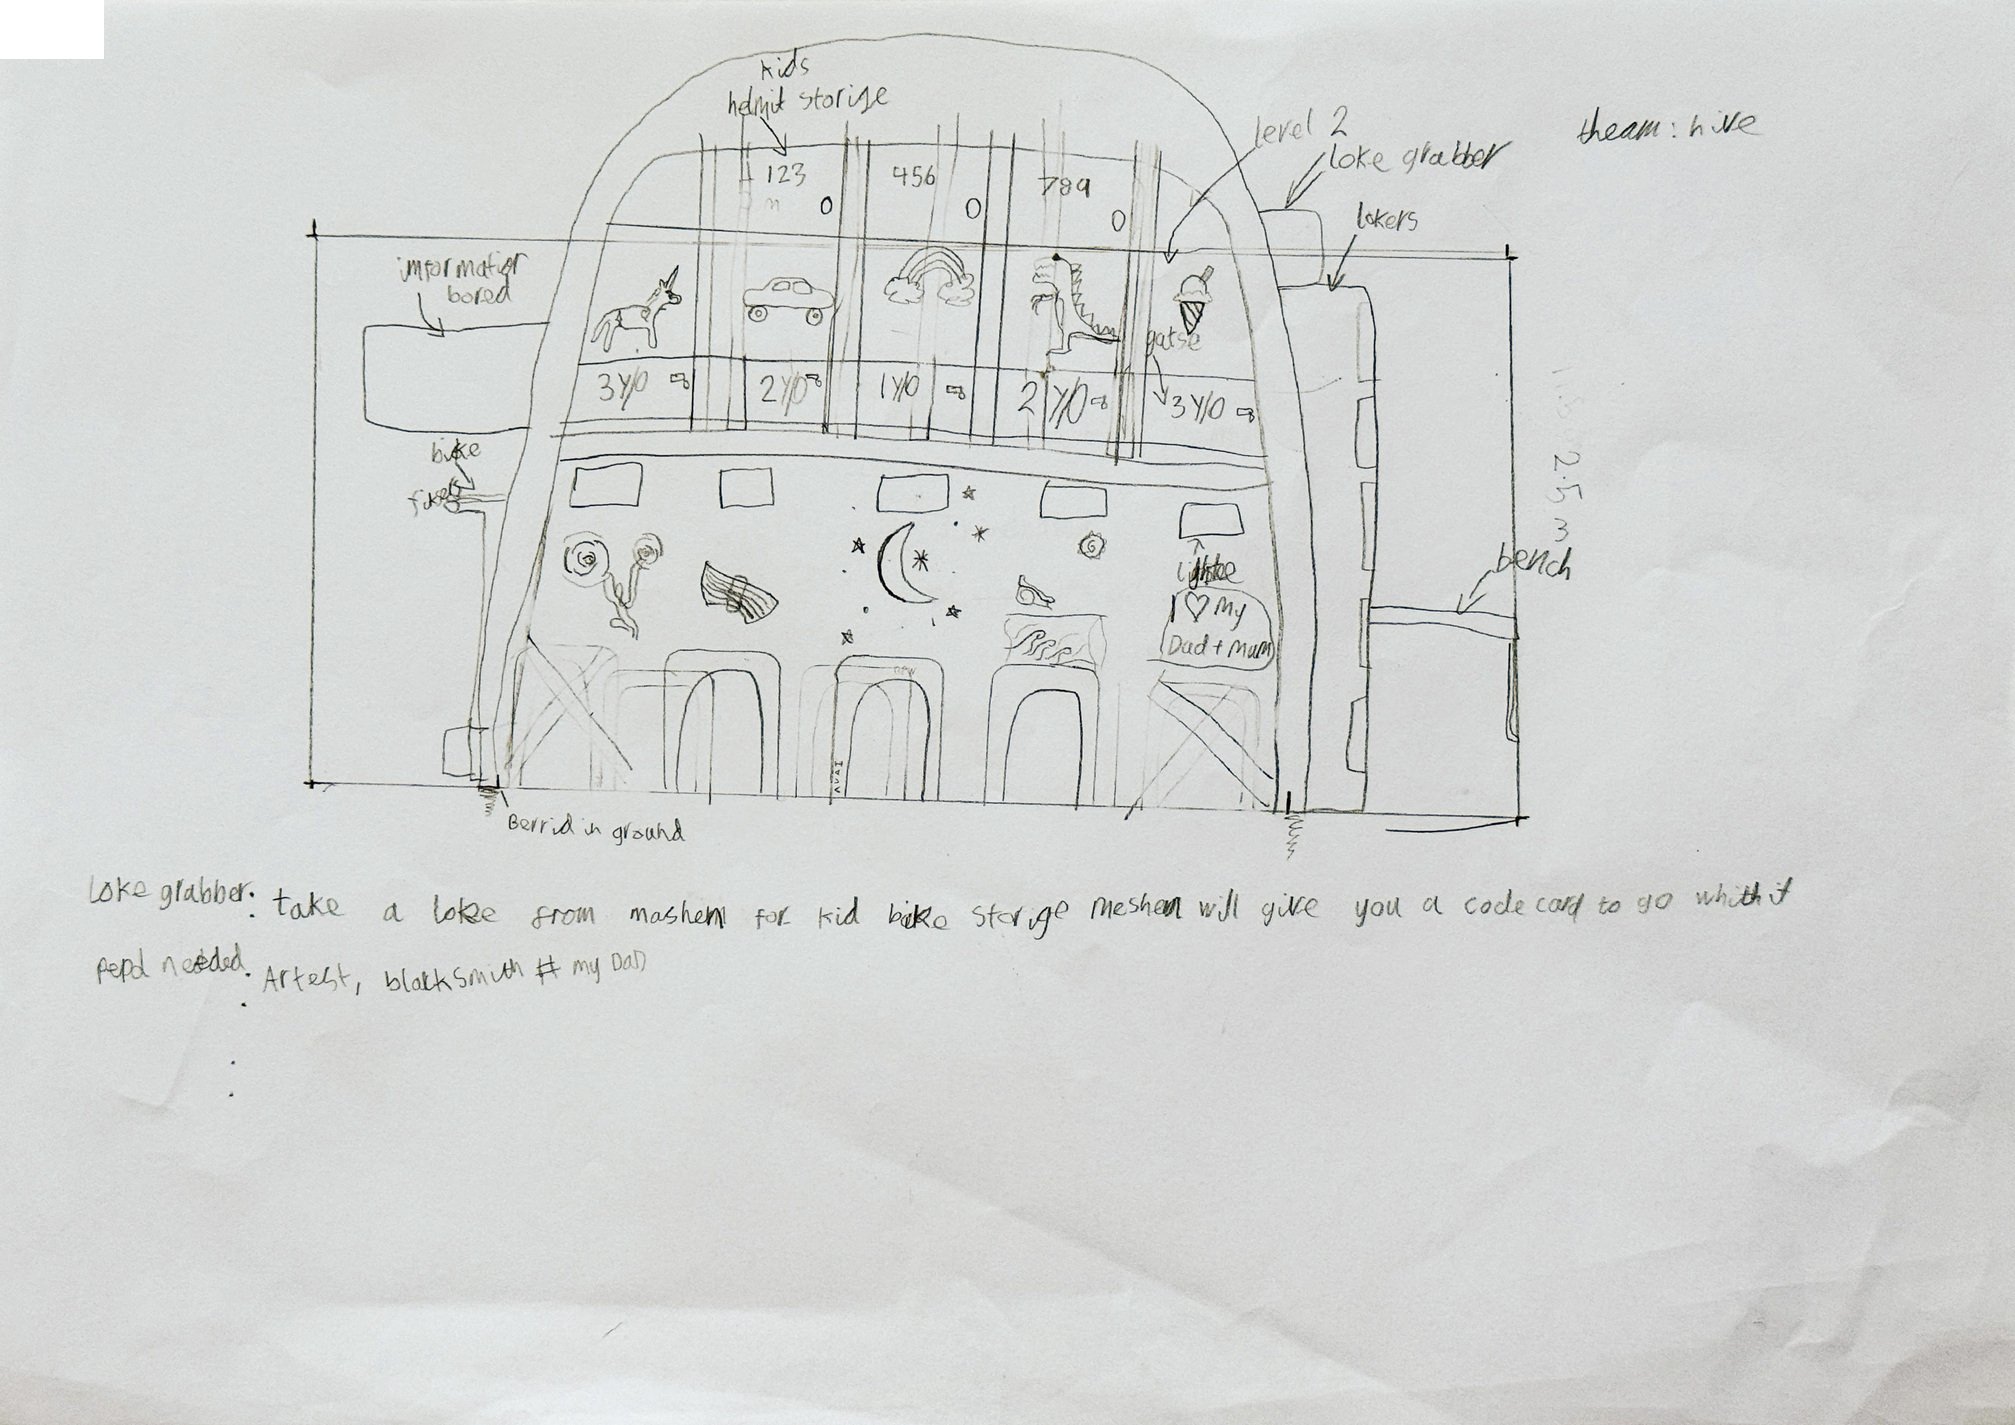 kids
helmit storige
level 2
loke grabber
theam: hive
lokers
123
456
789
imformation
bored
gatse
3 Y/O
2 Y/O
1 Y/O
2 Y/O
3 Y/O
bike
2.5 m
bench
I ♡ My
Dad + Mum
Berrid in ground
Loke grabber: take a loke from mashen for kid bike storige meshen will give you a code card to go whith it
needed: Artest, blacksmith # my DaD